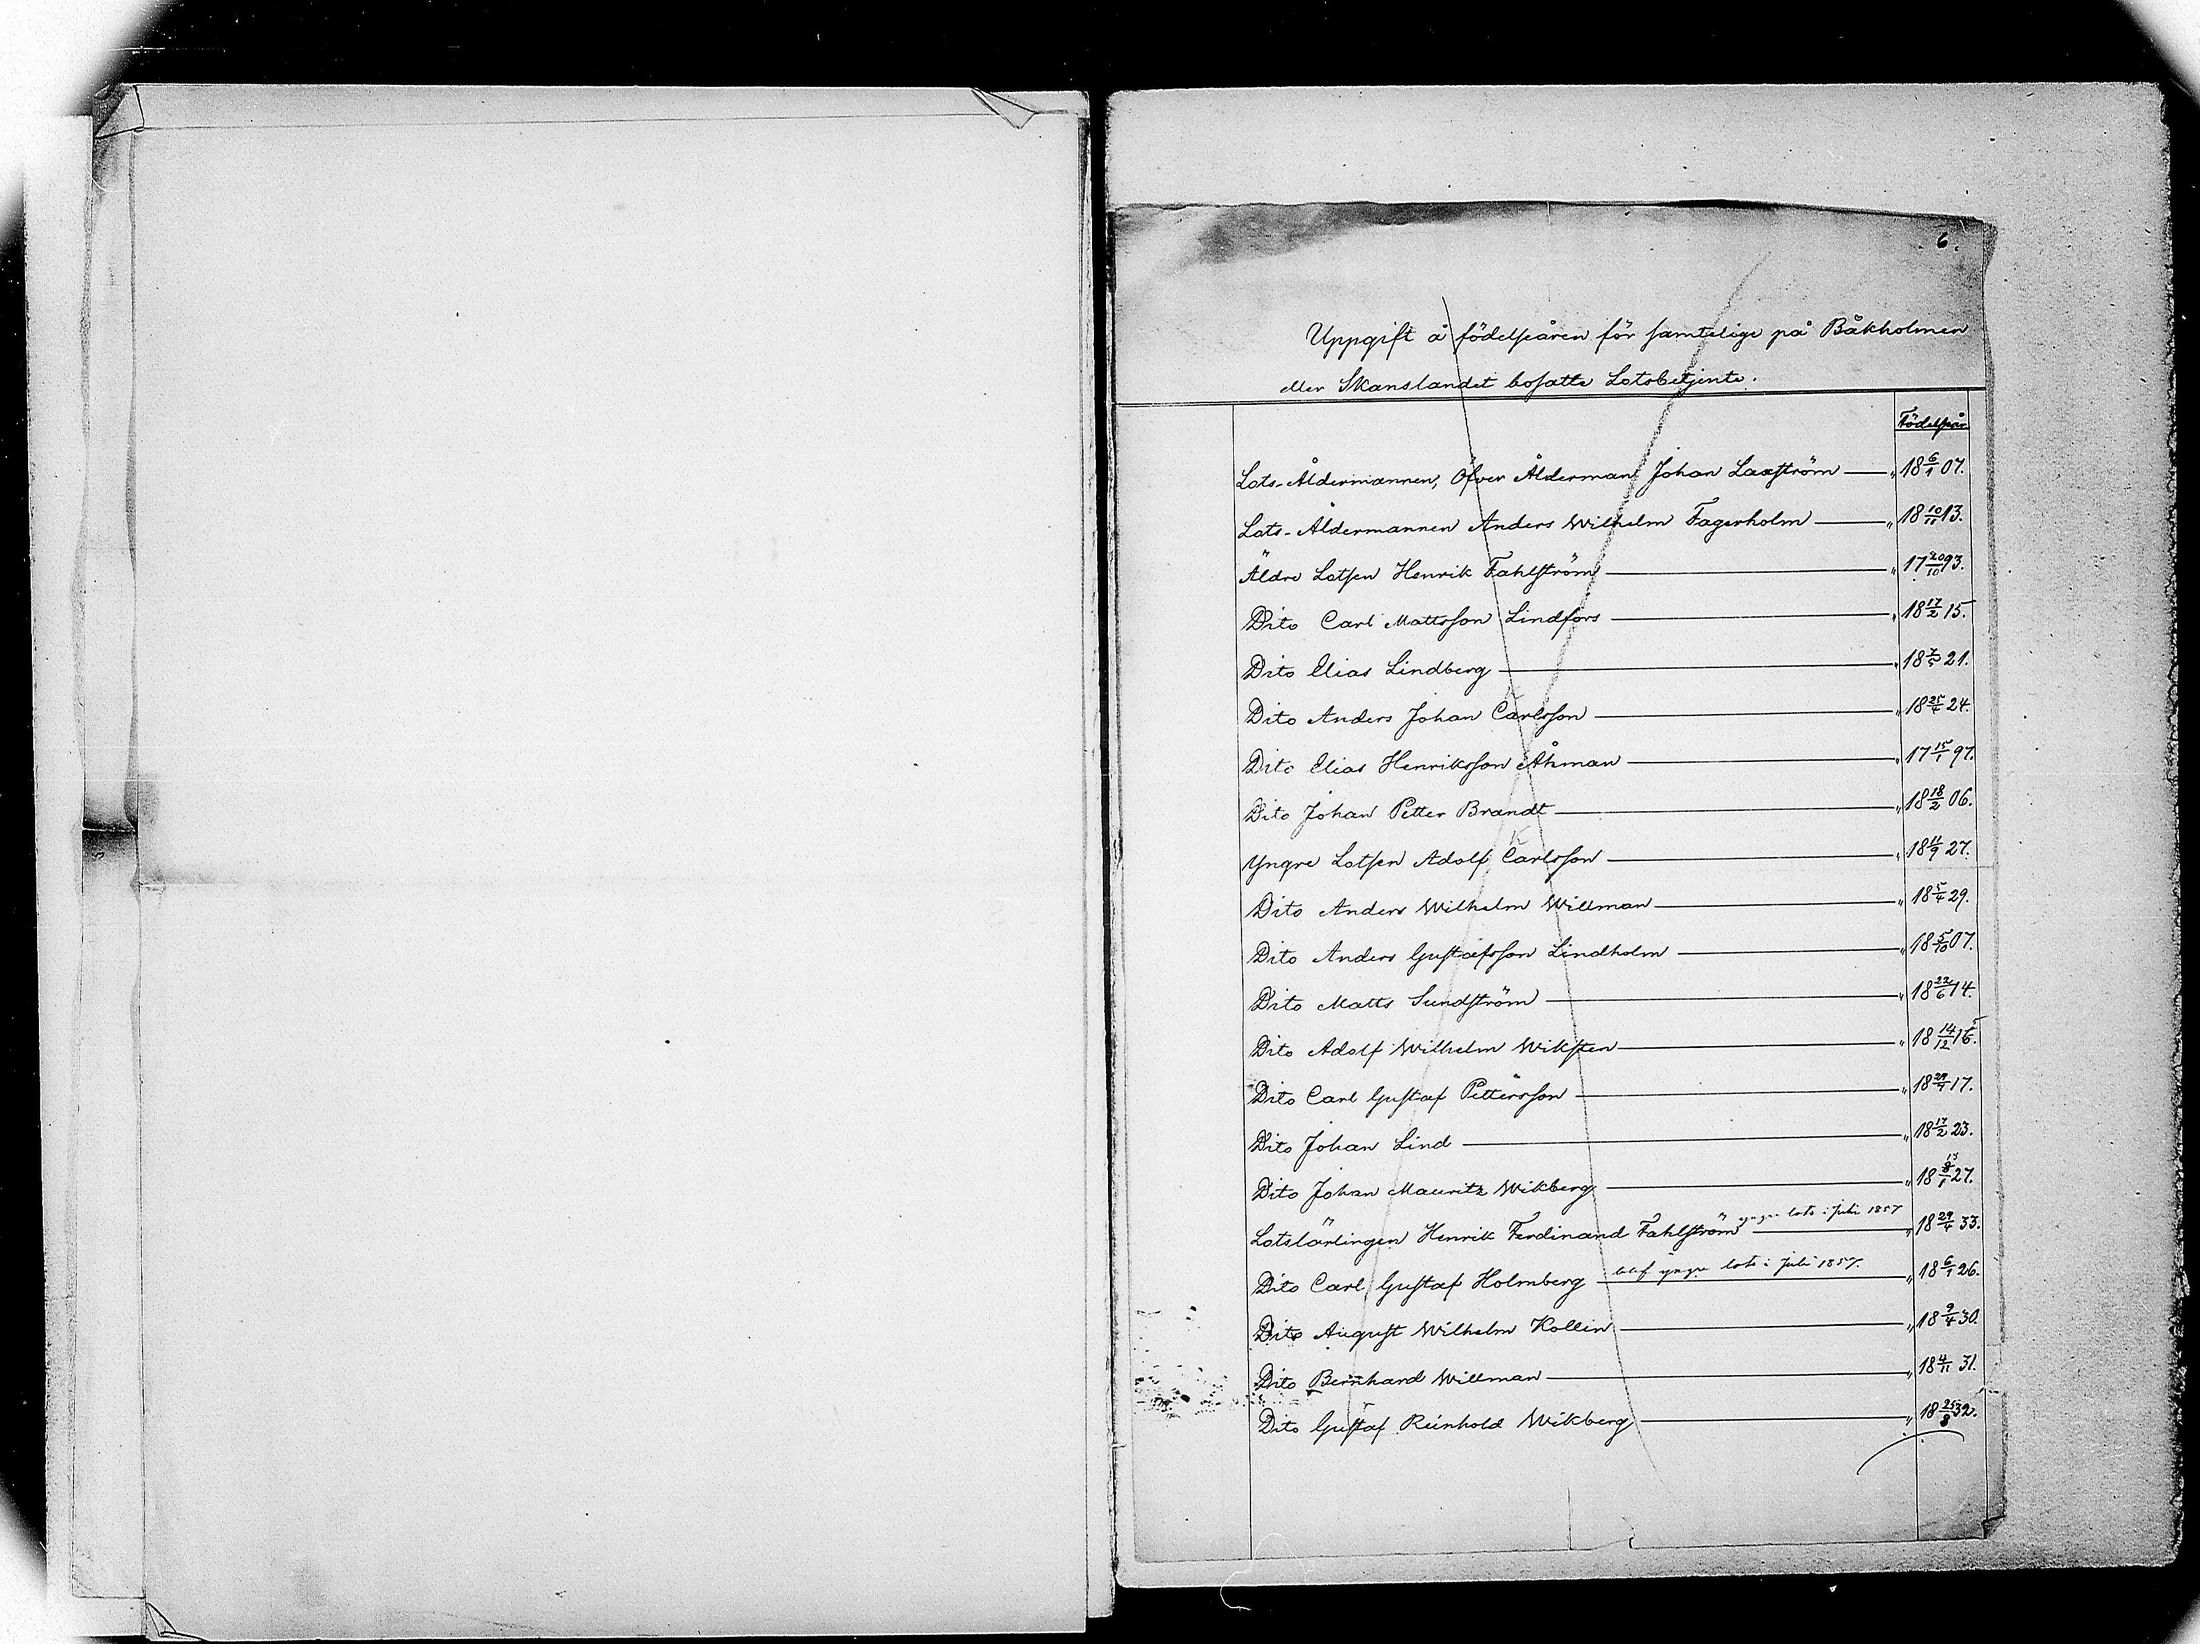 6.
Uppgift å födelseåren för samtelige på Båkholmen
eller Skanslandet bosatte Lotsbetjente.
Födelseår
Lots-Åldermannen, Öfver Ålderman Johan Laxström — " 18 6/1 07.
Lots-Åldermannen Anders Wilhelm Fagerholm — " 18 10/11 13.
Äldre Lotsen Henrik Fahlström — " 17 20/10 93.
Dito Carl Mattsson Lindfors — " 18 17/2 15.
Dito Elias Lindberg — " 18 7/5 21.
Dito Anders Johan Carlsson — " 18 25/4 24.
Dito Elias Henriksson Åhman — " 17 15/1 97.
Dito Johan Petter Brandt — " 18 18/2 06.
Yngre Lotsen Adolf Carlsson — " 18 11/9 27.
Dito Anders Wilhelm Willman — " 18 5/4 29.
Dito Anders Gustafsson Lindholm — " 18 5/10 07.
Dito Matts Sundström — " 18 22/6 14.
Dito Adolf Wilhelm Wiksten — " 18 14/12 15.
Dito Carl Gustaf Pettersson — " 18 17.
Dito Johan Lind — " 18 17/2 23.
Dito Johan Mauritz Wikberg — " 18 13/1 27.
Lotslärlingen Henrik Ferdinand Fahlström yngre lots i Juli 1857 — " 18 29/4 33.
Dito Carl Gustaf Holmberg — blef yngre lots i Juli 1857. " 18 6/1 26.
Dito August Wilhelm Kollin — " 18 9/4 30.
Dito Bernhard Willman — " 18 4/11 31.
Dito Gustaf Reinhold Wikberg — " 18 25/8 32.